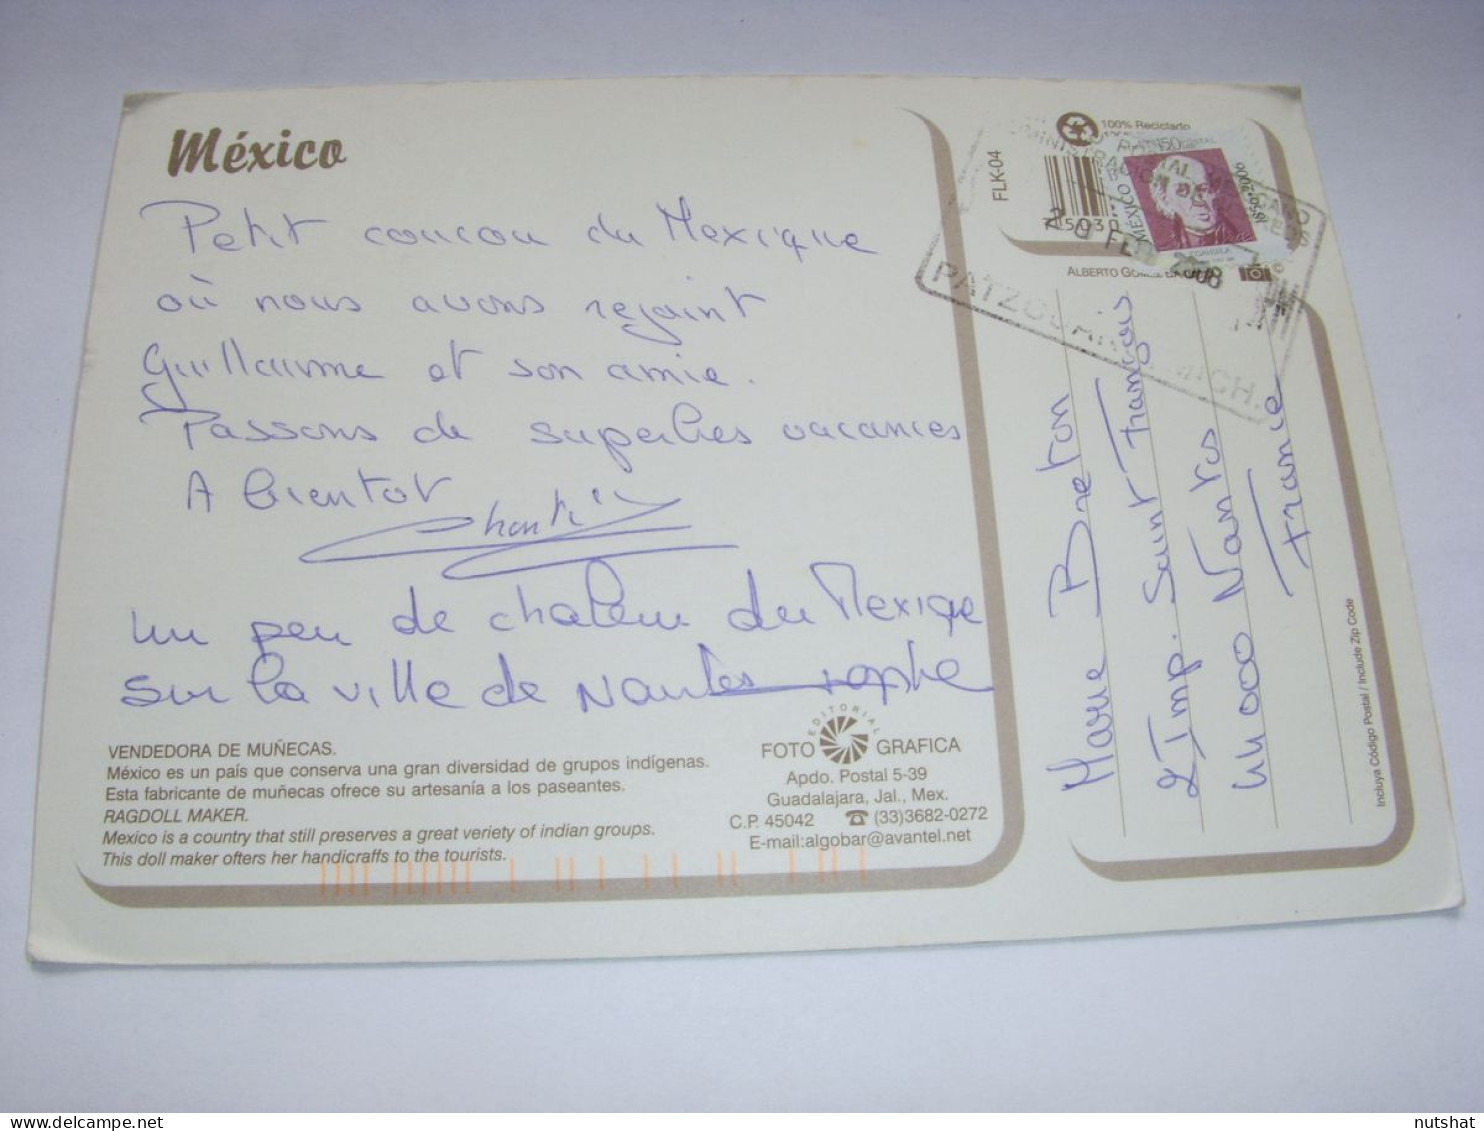 México
Petit coucou du Mexique
où nous avons rejoint
Guillaume et son amie.
Passons de superbes vacances
A bientot
un peu de chaleur du Mexique
sur la ville de Nantes
VENDEDORA DE MUÑECAS.
México es un país que conserva una gran diversidad de grupos indígenas.
Esta fabricante de muñecas ofrece su artesanía a los paseantes.
RAGDOLL MAKER.
Mexico is a country that still preserves a great veriety of indian groups.
This doll maker ofters her handicraffs to the tourists.
EDITORIAL
FOTO GRAFICA
Apdo. Postal 5-39
Guadalajara, Jal., Mex.
C.P. 45042 ☎ (33)3682-0272
E-mail:algobar@avantel.net
FLK-04
100% Reciclado
MÉXICO
1856•2006
FEB 2008
ALBERTO
MICH.
Marie Breton
2 Imp. Saint François
44000 Nantes
France
Incluya Código Postal / Include Zip Code
nutshat